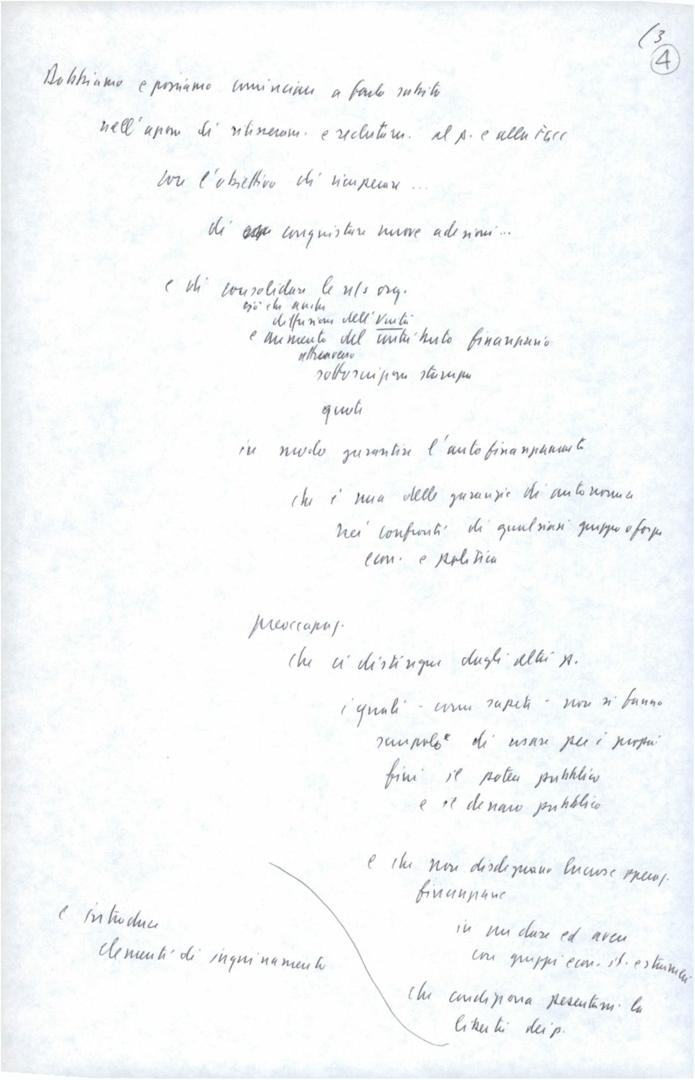 (3
4
Dobbiamo e possiamo cominciare a farlo subito
nell'opera di ritesseram. e reclutam. al p. e alla FGCI
con l'obiettivo di recuperare ...
di conquistare nuove adesioni...
e di consolidare le ns/ org.
ciò che anche
diffusione dell'Unità
e aumento del contributo finanziario
attraverso
sottoscrizione stampa
quote
in modo garantire l'autofinanziamento
che è una delle garanzie di autonomia
nei confronti di qualsiasi gruppo o forza
econ. e politica
preoccupaz.
che ci distingue dagli altri p.
i quali - come sapete - non si fanno
scrupolo di usare per i propri
fini il potere pubblico
e il denaro pubblico
e che non disdegnano lucrose operaz.
finanziarie
in un dare ed avere
con gruppi econ. it. e stranieri
che condiziona pesantem. la
libertà dei p.
e introduce
elementi di inquinamento